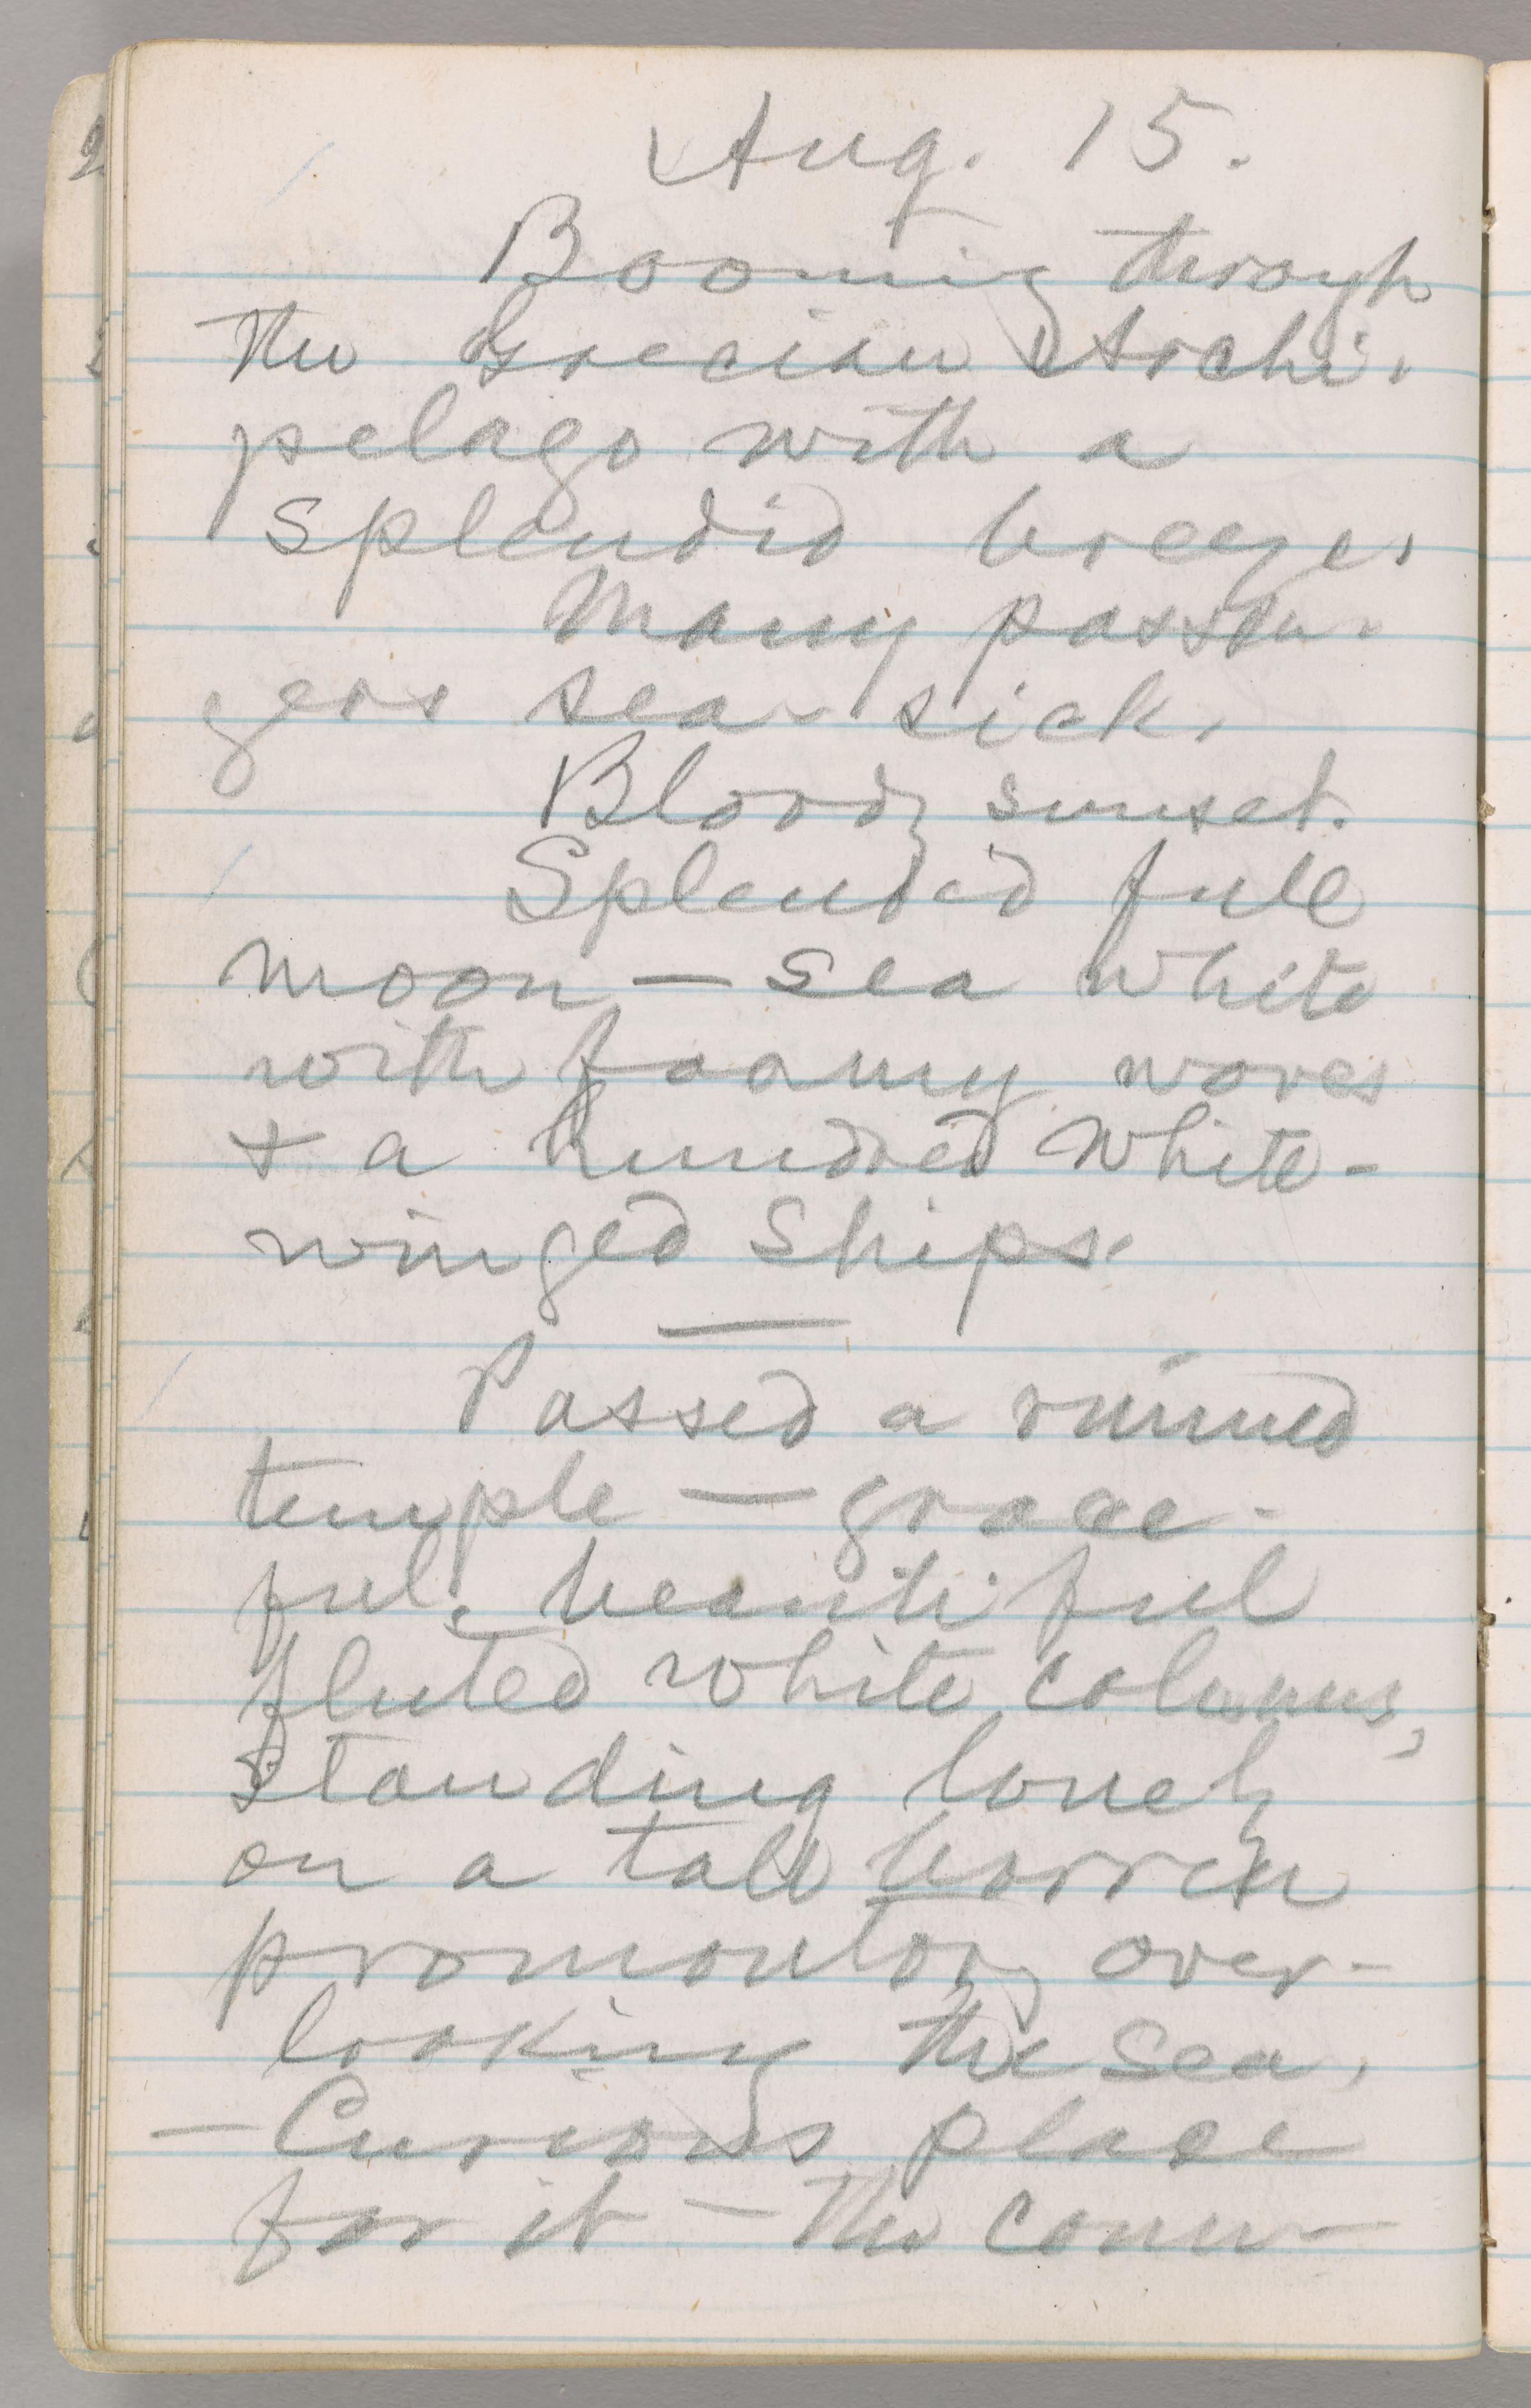 Aug. 15.
Booming through
the Grecian Archi-
pelago with a
splendid breeze.
Many passen-
gers sea-sick.
Bloody sunset.
Splendid full
moon — sea white
with foamy waves
& a hundred white-
winged ships.
Passed a ruined
temple — grace-
ful, beautiful
fluted white columns,
standing lonely
on a tall barren
promontory over-
looking the sea.
— Curious place
for it — the coun-